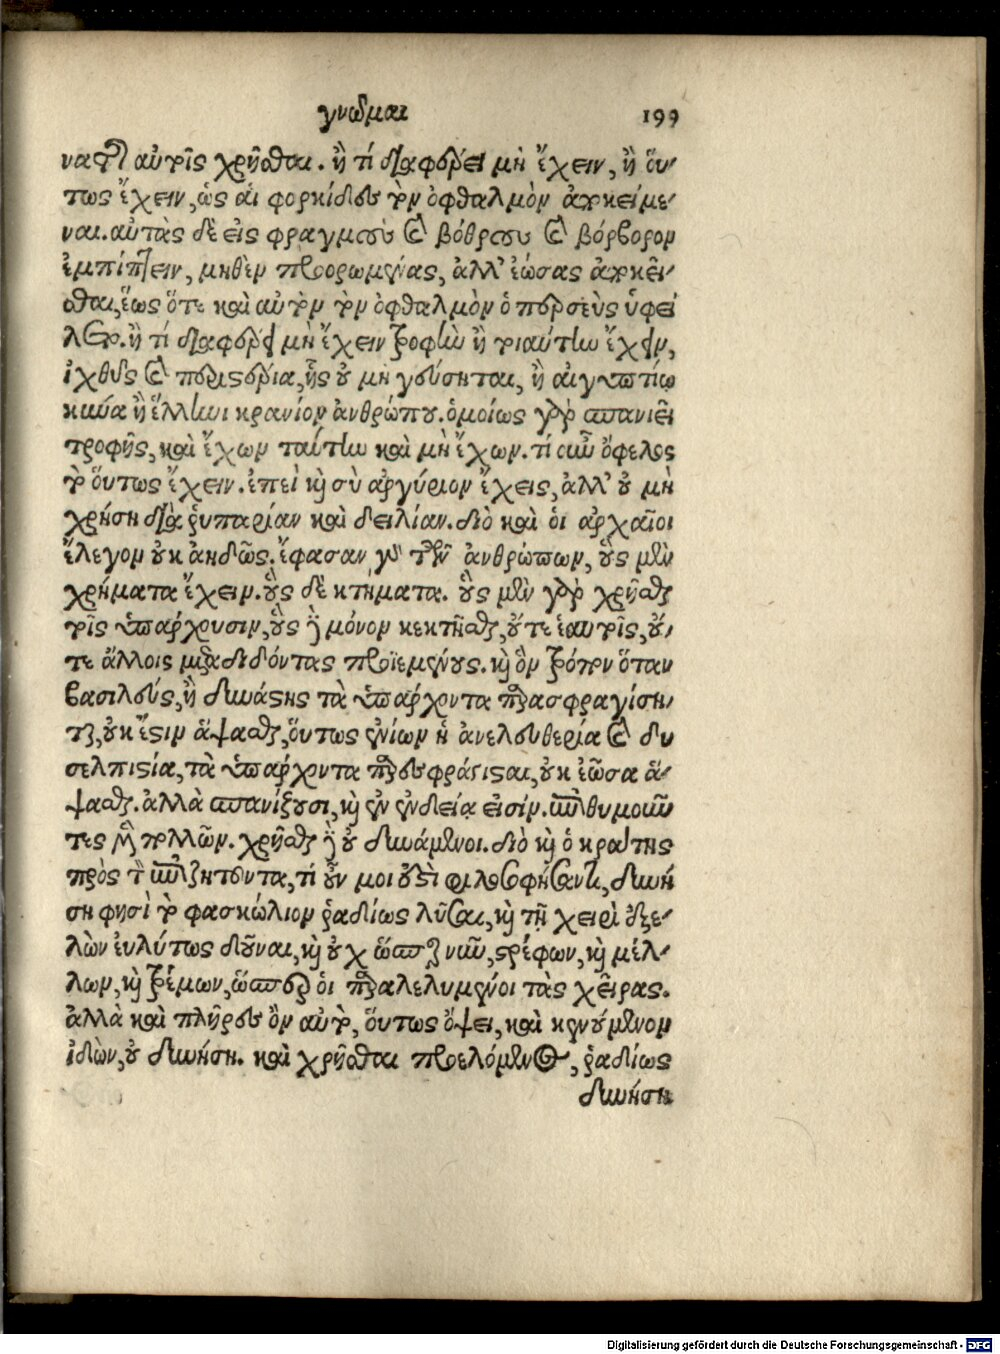 γνῶμαι 199
νασθαι αὐτοῖς χρῆσθαι. ἢ τί διαφέρει μὴ ἔχειν, ἢ οὕ-
τως ἔχειν, ὡς αἱ φορκίδες τὸν ὀφθαλμὸν ἀποκείμε-
ναι. αὐτὰς δὲ εἰς φραγμοὺς καὶ βόθρους καὶ βόρβορον
ἐμπίπτειν, μηθὲν προορωμένας, ἀλλ' ἐώσας ἀποκεῖ-
σθαι, ἕως ὅτε καὶ αὐτὸν τὸν ὀφθαλμὸν ὁ περσεὺς ὑφεί
λετο. ἢ τί διαφέρει μὴ ἔχειν τροφὴν ἢ τοιαύτην ἔχειν,
ἰχθὺς καὶ περιστέρια, ἧς οὐ μὴ γεύσηται, ἢ αἰγυπτίῳ
κύνα ἢ ἕλληνι κρανίον ἀνθρώπου. ὁμοίως γὰρ σπανιεῖ
τροφῆς, καὶ ἔχων ταύτην καὶ μὴ ἔχων. τί οὖν ὄφελος
τὸ οὕτως ἔχειν. ἐπεὶ καὶ σὺ ἀργύριον ἔχεις, ἀλλ' οὐ μὴ
χρήσῃ διὰ ῥυπαρίαν καὶ δειλίαν. διὸ καὶ οἱ ἀρχαῖοι
ἔλεγον οὐκ ἀηδῶς. ἔφασαν γὰρ τῶν ἀνθρώπων, οὓς μὲν
χρήματα ἔχειν. οὓς δὲ κτήματα. οὓς μὲν γὰρ χρῆσθαι
τοῖς ὑπάρχουσιν, οὓς δὲ μόνον κεκτῆσθαι, οὔτε ἑαυτοῖς, οὔ-
τε ἄλλοις μεταδιδόντας προϊεμένους. καὶ ὃν τρόπον ὅταν
βασιλεύς, ἢ δυνάστης τὰ ὑπάρχοντα παρασφραγίσῃ-
ται, οὐκ ἔστιν ἅψασθαι, οὕτως ἐνίων ἡ ἀνελευθερία καὶ δυ
σελπιστία, τὰ ὑπάρχοντα παρεσφράγισται, οὐκ ἐῶσα ἅ-
ψασθαι. ἀλλὰ σπανίζουσι, καὶ ἐν ἐνδείᾳ εἰσίν. ἐπιθυμοῦν
τες μὲν πολλῶν. χρῆσθαι δὲ οὐ δυνάμενοι. διὸ καὶ ὁ κράτης
πρὸς τὸν ἐπιζητοῦντα, τί οὖν μοι ἔσται φιλοσοφήσαντι, δυνή
σῃ φησὶ τὸ φασκώλιον ῥᾳδίως λῦσαι, καὶ τῇ χειρὶ ἐξε-
λὼν εὐλύτως δοῦναι, καὶ οὐχ ὥσπερ νῦν, στρέφων, καὶ μέλ-
λων, καὶ τρέμων, ὥσπερ οἱ παραλελυμένοι τὰς χεῖρας.
ἀλλὰ καὶ πλῆρες ὂν αὐτὸ, οὕτως ὄψει, καὶ κενούμενον
ἰδὼν, οὐ δυνήσῃ. καὶ χρῆσθαι προελόμενος, ῥᾳδίως
δυνήσῃ
Digitalisierung gefördert durch die Deutsche Forschungsgemeinschaft - DFG